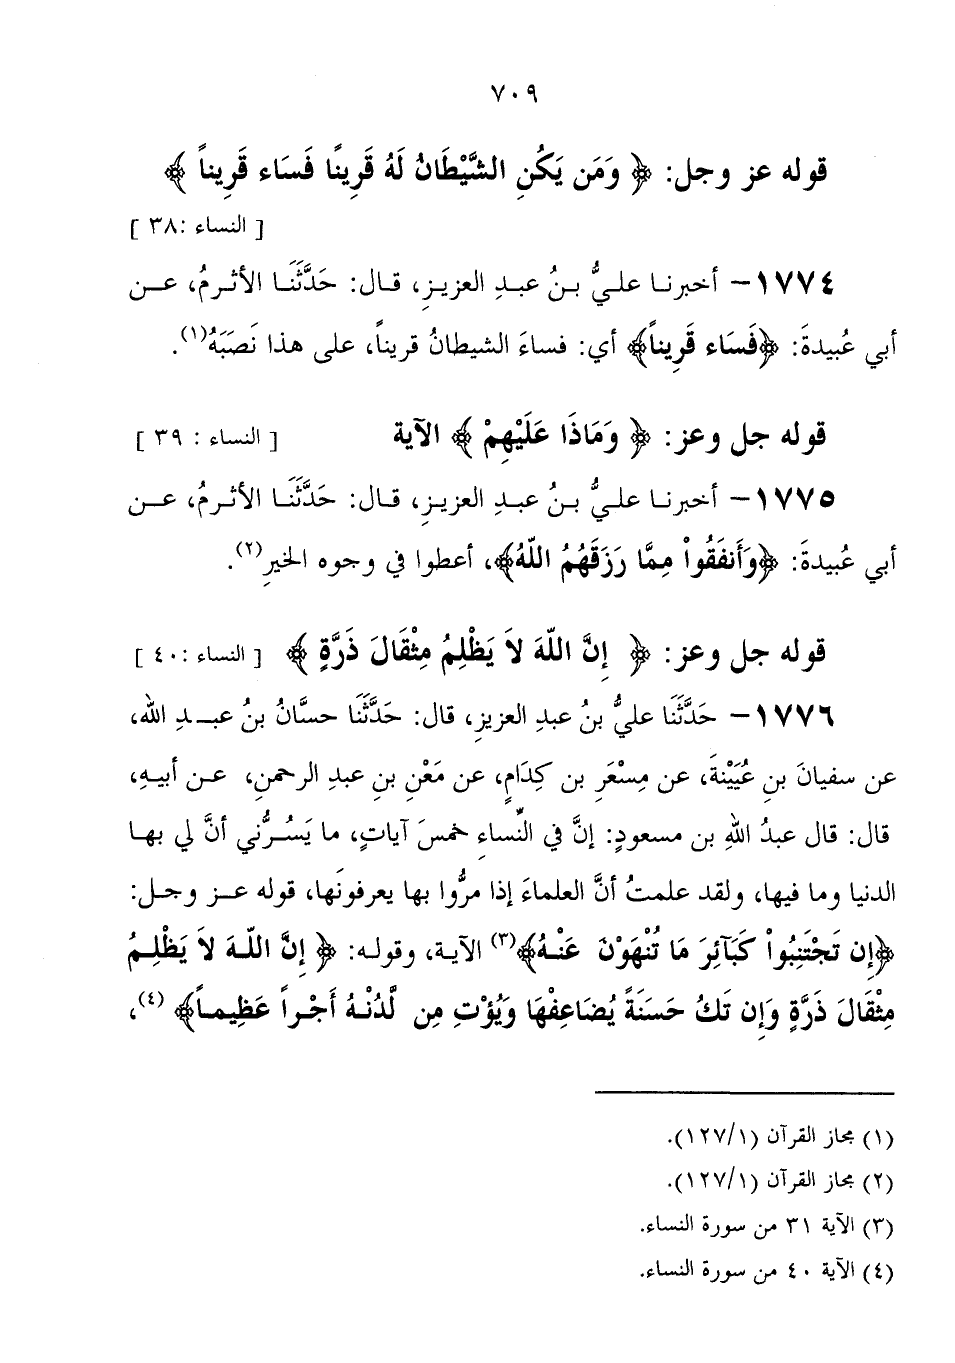 ٧٠٩
قوله عز وجل: ﴿ وَمَن يَكُنِ الشَّيْطَانُ لَهُ قَرِينًا فَسَاء قَرِيناً ﴾
[ النساء :٣٨ ]
١٧٧٤– أخبرنا عليُّ بنُ عبدِ العزيزِ، قال: حَدَّثَنَا الأثرمُ، عن
أبي عُبيدةَ: ﴿فَسَاء قَرِيناً﴾ أي: فساءَ الشيطانُ قريناً، على هذا نَصَبَهُ(١).
قوله جل وعز: ﴿ وَمَاذَا عَلَيْهِمْ ﴾ الآية [ النساء : ٣٩ ]
١٧٧٥– أخبرنا عليُّ بنُ عبدِ العزيزِ، قال: حَدَّثَنَا الأثرمُ، عن
أبي عُبيدةَ: ﴿وَأَنفَقُواْ مِمَّا رَزَقَهُمُ اللّهُ﴾، أعطوا في وجوه الخيرِ(٢).
قوله جل وعز: ﴿ إِنَّ اللّهَ لاَ يَظْلِمُ مِثْقَالَ ذَرَّةٍ ﴾ [ النساء :٤٠ ]
١٧٧٦– حَدَّثَنَا عليُّ بنُ عبدِ العزيزِ، قال: حَدَّثَنَا حسَّانُ بنُ عبدِ الله،
عن سفيانَ بنِ عُيَيْنةَ، عن مِسْعَرِ بن كِدَامٍ، عن مَعْنِ بنِ عبدِ الرحمنِ، عن أبيهِ،
قال: قال عبدُ اللهِ بن مسعودٍ: إنَّ في النِّساءِ خمسَ آياتٍ، ما يَسُرُّني أنَّ لي بها
الدنيا وما فيها، ولقد علمتُ أنَّ العلماءَ إذا مرُّوا بها يعرفونَها، قوله عز وجل:
﴿إِن تَجْتَنِبُواْ كَبَآئِرَ مَا تُنْهَوْنَ عَنْهُ﴾(٣) الآية، وقوله: ﴿ إِنَّ اللّهَ لاَ يَظْلِمُ
مِثْقَالَ ذَرَّةٍ وَإِن تَكُ حَسَنَةً يُضَاعِفْهَا وَيُؤْتِ مِن لَّدُنْهُ أَجْراً عَظِيماً﴾ (٤)،
(١) مجاز القرآن (١٢٧/١).
(٢) مجاز القرآن (١٢٧/١).
(٣) الآية ٣١ من سورة النساء.
(٤) الآية ٤٠ من سورة النساء.